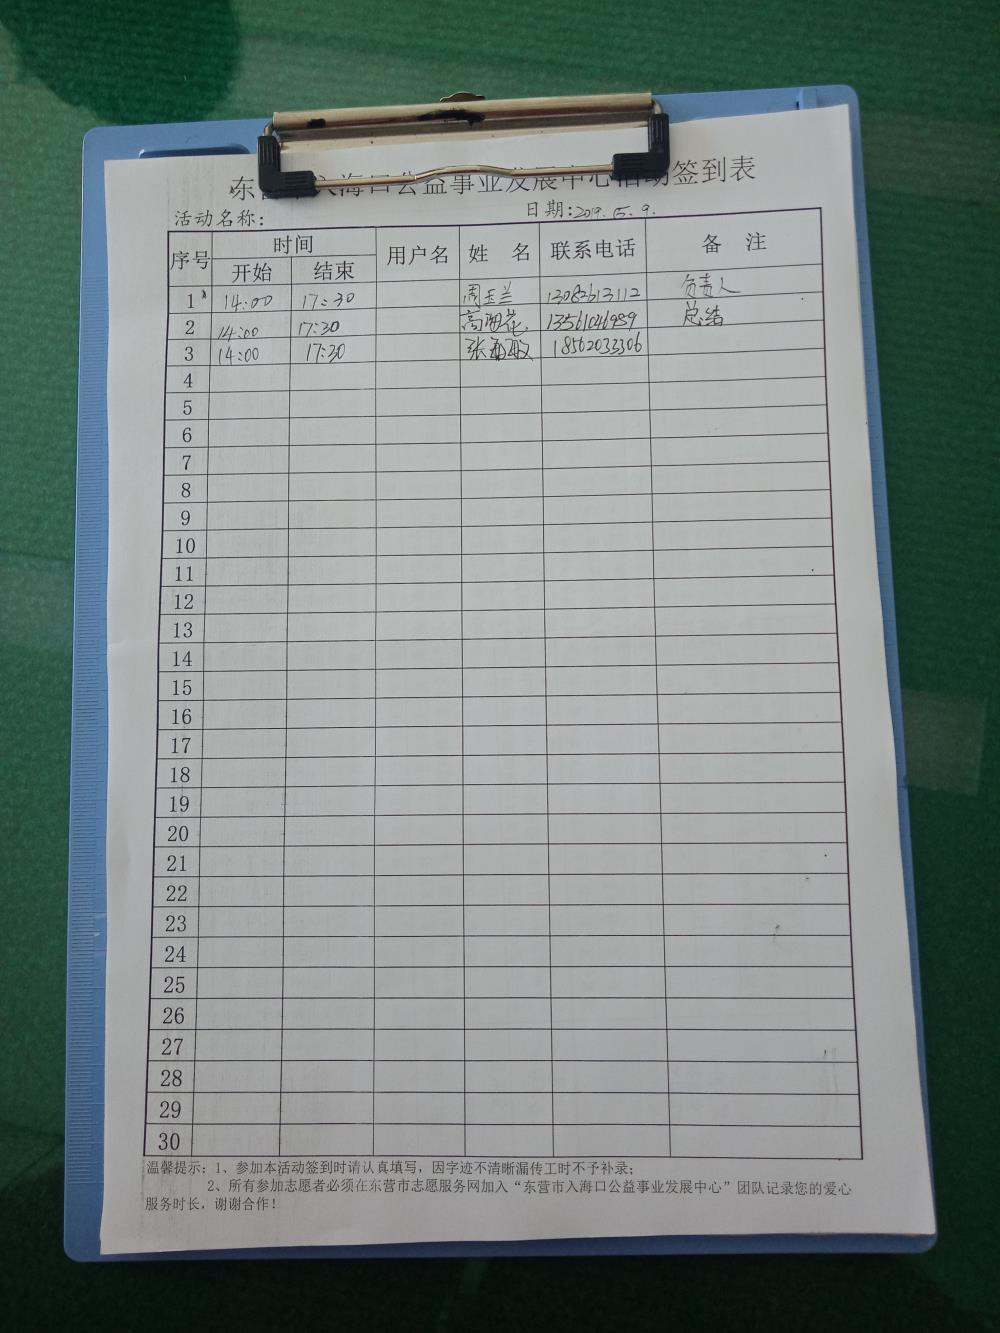 东营市入海口公益事业发展中心活动签到表
活动名称: 日期:2019.5.9.
序号 时间 用户名 姓 名 联系电话 备 注
开始 结束
1 14:00 17:30 周玉兰 13082613112 负责人
2 14:00 17:30 13561046989 总结
3 14:00 17:30 18562033306
4
5
6
7
8
9
10
11
12
13
14
15
16
17
18
19
20
21
22
23
24
25
26
27
28
29
30
温馨提示: 1、参加本活动签到时请认真填写,因字迹不清晰漏传工时不予补录;
2、所有参加志愿者必须在东营市志愿服务网加入“东营市入海口公益事业发展中心”团队记录您的爱心
服务时长,谢谢合作!